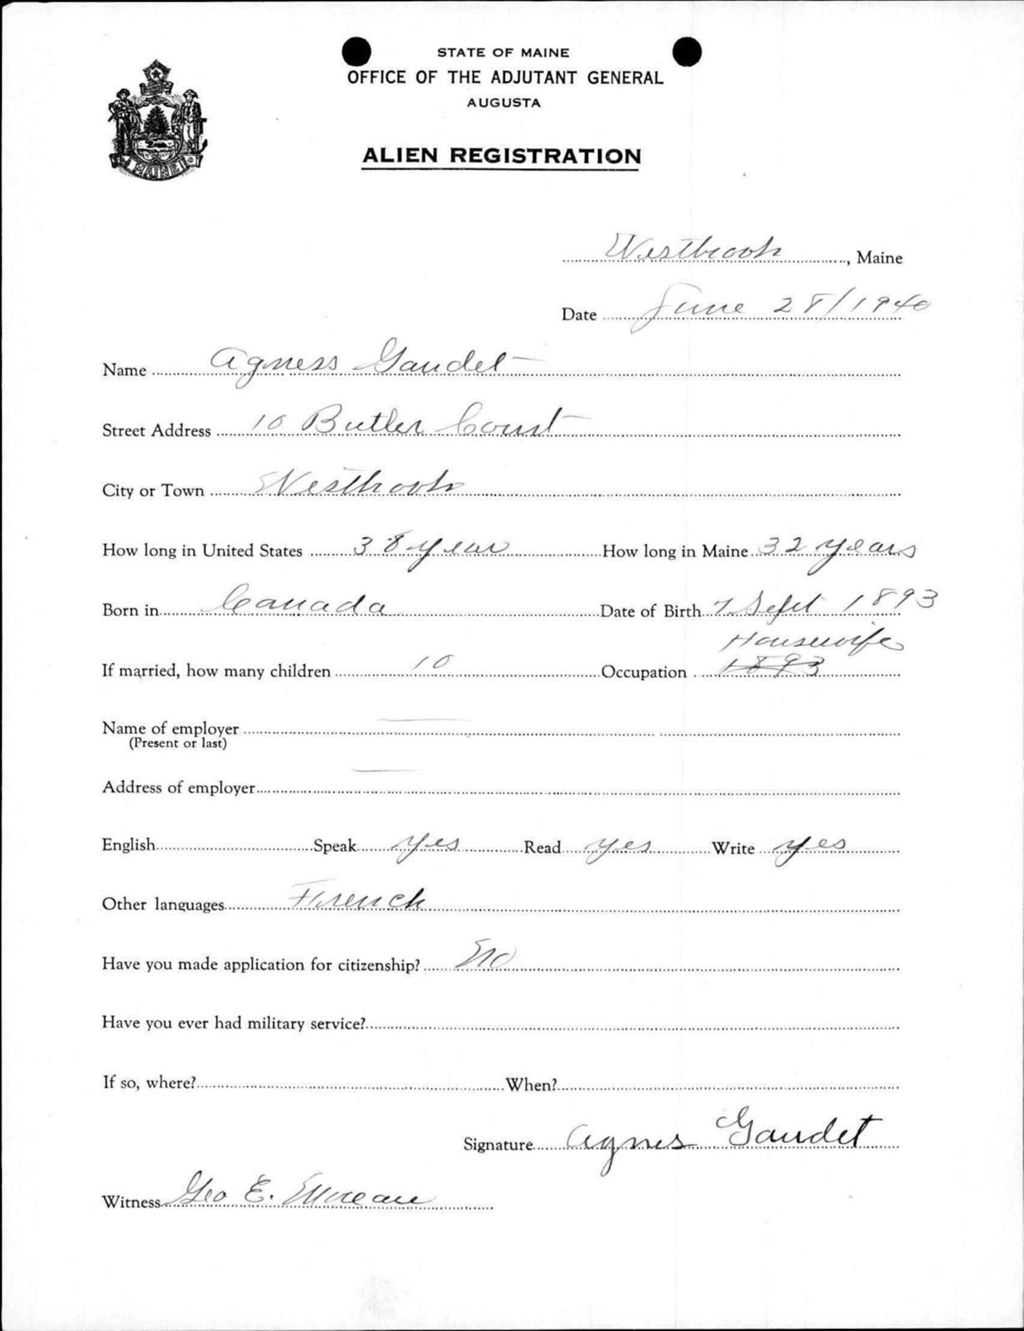 STATE OF MAINE
OFFICE OF THE ADJUTANT GENERAL
AUGUSTA
ALIEN REGISTRATION
MAINE
Westbrook, Maine
Date June 28/1940
Name Agness Gaudet
Street Address 10 Butler Court
City or Town Westbrook
How long in United States 38 year How long in Maine 32 years
Born in Canada Date of Birth 7 Sept 1893
Housewife
If married, how many children 10 Occupation 1893
Name of employer
(Present or last)
Address of employer
English Speak yes Read yes Write yes
Other languages French
Have you made application for citizenship? No
Have you ever had military service?
If so, where? When?
Signature Agnes Gaudet
Witness Geo E. Moreau